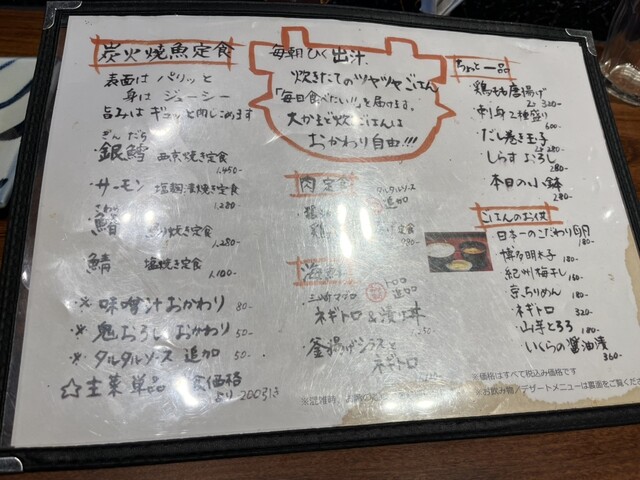 炭火焼魚定食
表面は パリッと
身は ジューシー
旨みは ギュッと閉じこめます
ぎんだら
・銀鱈 西京焼き定食
1,450-
・サーモン 塩麹漬焼き定食
1,280-
焼き定食
1,280-
・鯖 塩焼き定食
1,100-
・※味噌汁おかわり 80-
・※鬼おろし おかわり 50-
・※タルタルソース 追加 50-
☆主菜単品 定食価格
より200引き
毎朝ひく出汁、
炊きたてのツヤツヤごはん
「毎日食べたい!!」を届けます。
大かまで炊くごはんは
おかわり自由!!!
肉定食
タルタルソース
追加
定食
海鮮
・三崎マグロ
トロロ
追加
ネギトロ&漬け丼
・釜揚げシラスと
ネギトロ
ちょっと一品
・鶏もも唐揚げ
2コ 320-
・刺身2種盛り
600-
・だし巻き玉子
280-
・しらす おろし
280-
・本日の小鉢
180-
ごはんのお供
・日本一のこだわり卵
180-
・博多明太子
180-
・紀州梅干し
160-
・京ちりめん
180-
・ネギトロ
320-
・山芋とろろ 180-
・いくらの醤油漬
360-
※価格はすべて税込み価格です
※お飲み物/デザートメニューは裏面をご覧くだ